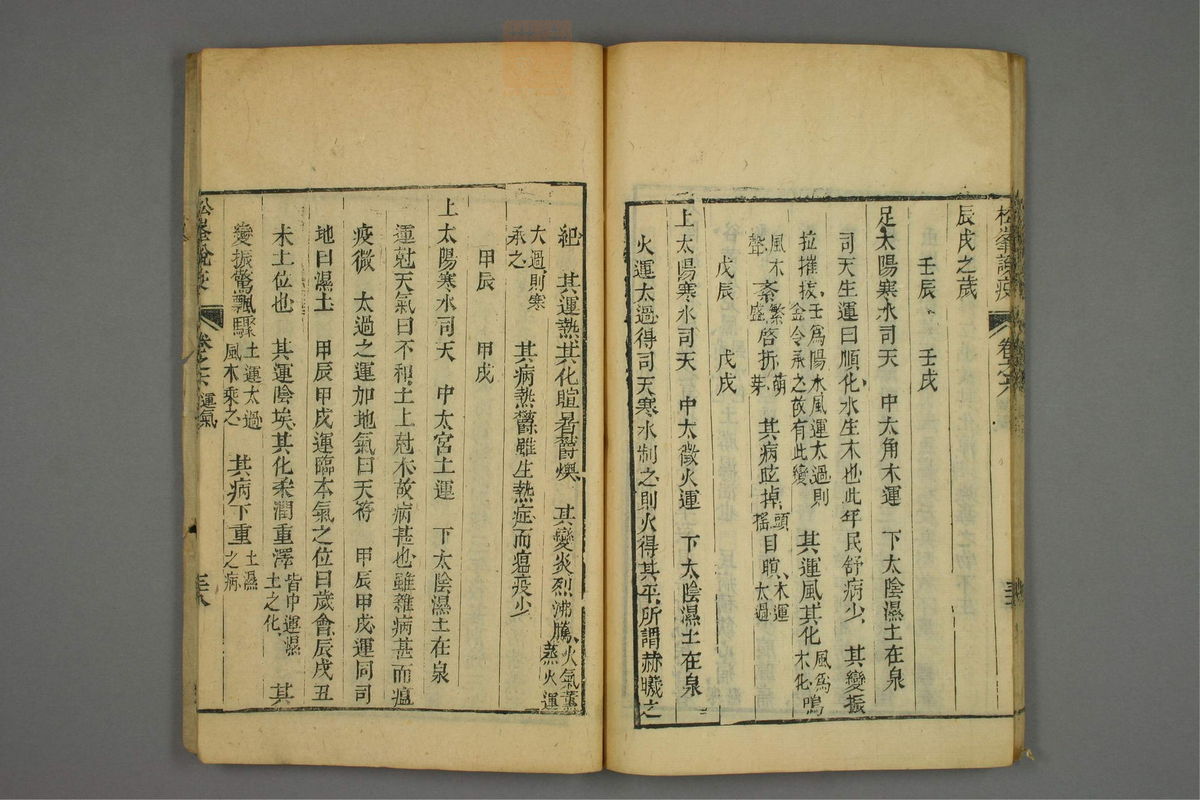 松峯說疫 卷之六
辰戌之歲
壬辰 壬戌
足太陽寒水司天 中太角木運 下太陰濕土在泉
司天生運曰順化水生木也此年民舒病少 其變振
拉摧拔壬爲陽木風運太過則金令承之故有此變 其運風其化風爲木化鳴
風木聲紊繁盛啓拆萌芽 其病眩掉頭搖目瞑木運太過
戊辰 戊戌
上太陽寒水司天 中太徵火運 下太陰濕土在泉
火運太過得司天寒水制之則火得其平所謂赫曦之
紀 其運熱其化暄暑鬱燠 其變炎烈沸騰火氣薰蒸火運
太過則寒承之 其病熱鬱雖生熱症而瘟疫少
甲辰 甲戌
上太陽寒水司天 中太宮土運 下太陰濕土在泉
運尅天氣曰不和土上尅水故病甚也雖雜病甚而瘟
疫微 太過之運加地氣曰天符 甲辰甲戌運同司
地曰濕土 甲辰甲戌運臨本氣之位曰歲會辰戌丑
未土位也 其運陰埃其化柔潤重澤皆中運濕土之化 其
變振驚飄驟土運太過風木乘之 其病下重土濕之病
松峯說疫 卷之六運氣